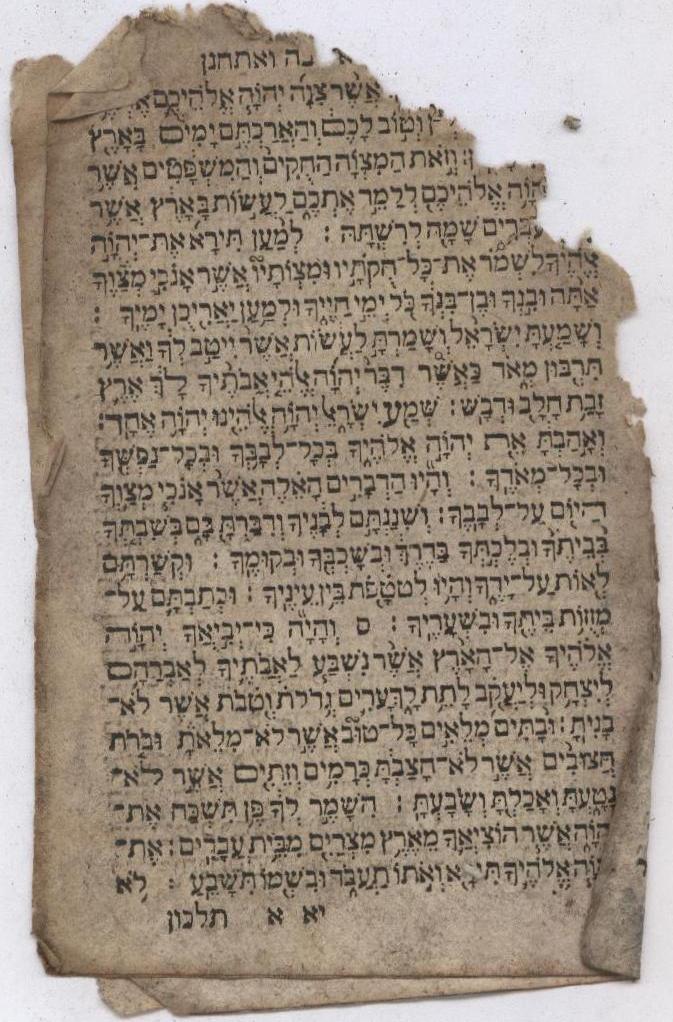 ואתחנן
אֲשֶׁר צִוָּה יְהוָֹה אֱלֹהֵיכֶם
וְטוֹב לָכֶם וְהַאֲרַכְתֶּם יָמִים בָּאָרֶץ
וְזֹאת הַמִּצְוָה הַחֻקִּים וְהַמִּשְׁפָּטִים אֲשֶׁר
אֱלֹהֵיכֶם לְלַמֵּד אֶתְכֶם לַעֲשׂוֹת בָּאָרֶץ אֲשֶׁר
עֹבְרִים שָׁמָּה לְרִשְׁתָּהּ : לְמַעַן תִּירָא אֶת־יְהוָֹה
אֱלֹהֶיךָ לִשְׁמֹר אֶת־כָּל־חֻקֹּתָיו וּמִצְוֹתָיו אֲשֶׁר אָנֹכִי מְצַוֶּךָ
אַתָּה וּבִנְךָ וּבֶן־בִּנְךָ כֹּל יְמֵי חַיֶּיךָ וּלְמַעַן יַאֲרִיכֻן יָמֶיךָ :
וְשָׁמַעְתָּ יִשְׂרָאֵל וְשָׁמַרְתָּ לַעֲשׂוֹת אֲשֶׁר יִיטַב לְךָ וַאֲשֶׁר
תִּרְבּוּן מְאֹד כַּאֲשֶׁר דִּבֶּר יְהוָֹה אֱלֹהֵי אֲבֹתֶיךָ לָךְ אֶרֶץ
זָבַת חָלָב וּדְבָשׁ : שְׁמַע יִשְׂרָאֵל יְהוָֹה אֱלֹהֵינוּ יְהוָֹה אֶחָד :
וְאָהַבְתָּ אֵת יְהוָֹה אֱלֹהֶיךָ בְּכָל־לְבָבְךָ וּבְכָל־נַפְשְׁךָ
וּבְכָל־מְאֹדֶךָ : וְהָיוּ הַדְּבָרִים הָאֵלֶּה אֲשֶׁר אָנֹכִי מְצַוְּךָ
הַיּוֹם עַל־לְבָבֶךָ : וְשִׁנַּנְתָּם לְבָנֶיךָ וְדִבַּרְתָּ בָּם בְּשִׁבְתְּךָ
בְּבֵיתֶךָ וּבְלֶכְתְּךָ בַדֶּרֶךְ וּבְשָׁכְבְּךָ וּבְקוּמֶךָ : וּקְשַׁרְתָּם
לְאוֹת עַל־יָדֶךָ וְהָיוּ לְטֹטָפֹת בֵּין עֵינֶיךָ : וּכְתַבְתָּם עַל־
מְזוּזֹת בֵּיתֶךָ וּבִשְׁעָרֶיךָ : ס וְהָיָה כִּי־יְבִיאֲךָ יְהוָֹה
אֱלֹהֶיךָ אֶל־הָאָרֶץ אֲשֶׁר נִשְׁבַּע לַאֲבֹתֶיךָ לְאַבְרָהָם
לְיִצְחָק וּלְיַעֲקֹב לָתֶת לָךְ עָרִים גְּדֹלֹת וְטֹבֹת אֲשֶׁר לֹא־
בָנִיתָ : וּבָתִּים מְלֵאִים כָּל־טוּב אֲשֶׁר לֹא־מִלֵּאתָ וּבֹרֹת
חֲצוּבִים אֲשֶׁר לֹא־חָצַבְתָּ כְּרָמִים וְזֵיתִים אֲשֶׁר לֹא־
נָטָעְתָּ וְאָכַלְתָּ וְשָׂבָעְתָּ : הִשָּׁמֶר לְךָ פֶּן תִּשְׁכַּח אֶת־
יְהוָֹה אֲשֶׁר הוֹצִיאֲךָ מֵאֶרֶץ מִצְרַיִם מִבֵּית עֲבָדִים : אֶת־
יְהוָֹה אֱלֹהֶיךָ תִּירָא וְאֹתוֹ תַעֲבֹד וּבִשְׁמוֹ תִּשָּׁבֵעַ : לֹא
יא א תלכון